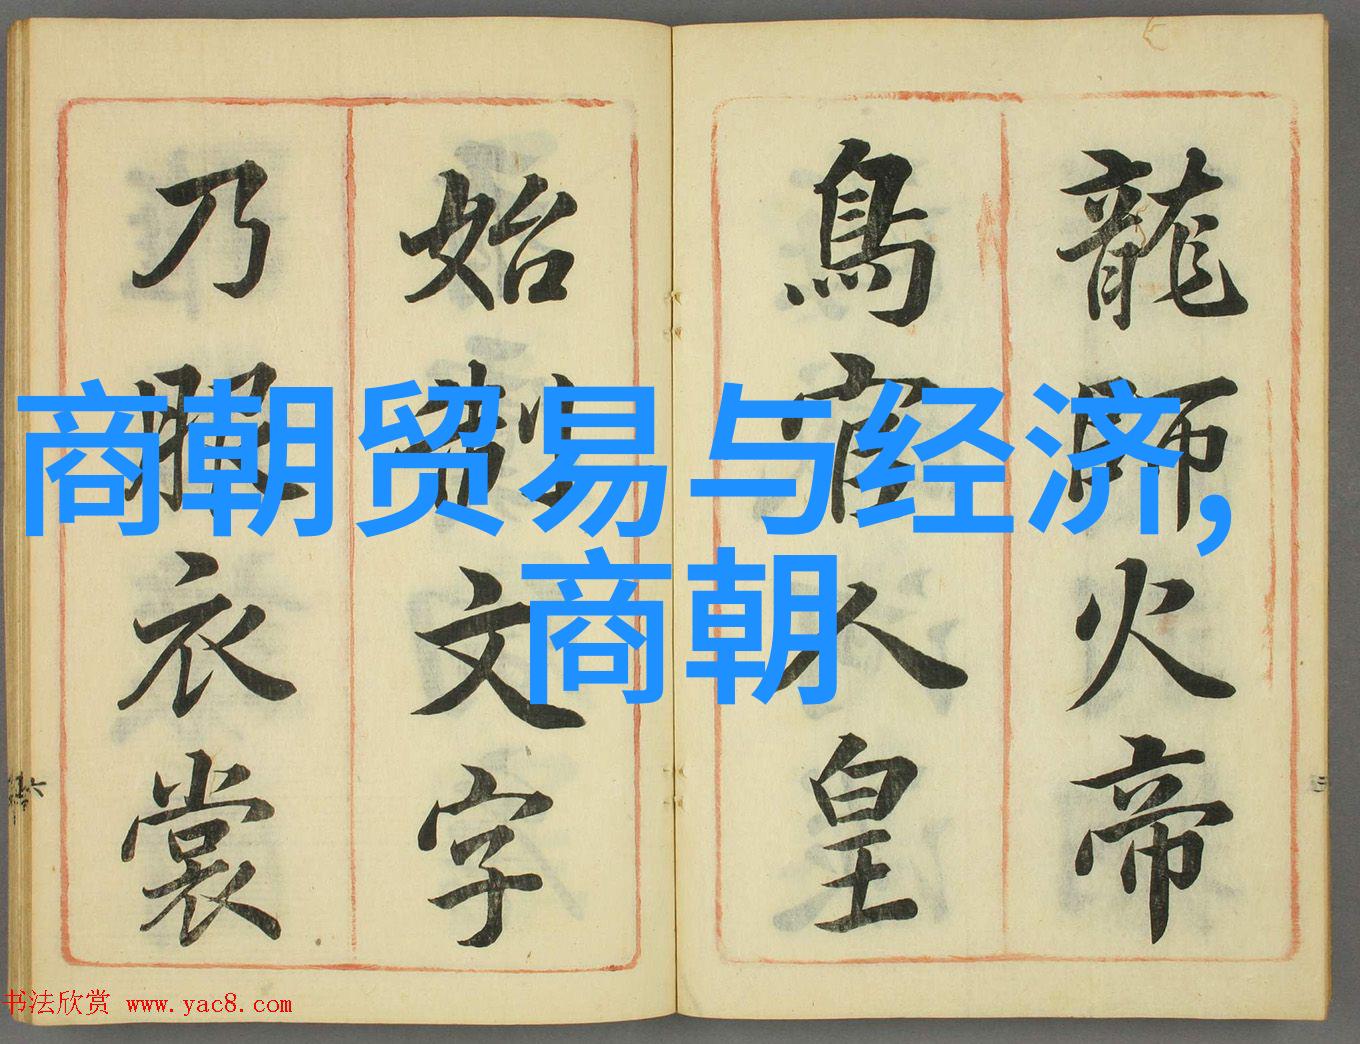 龍師火帝
鳥官人皇
始制文字
乃服衣裳
商朝贸易与经济,
商朝
书法欣赏 www.yac8.com